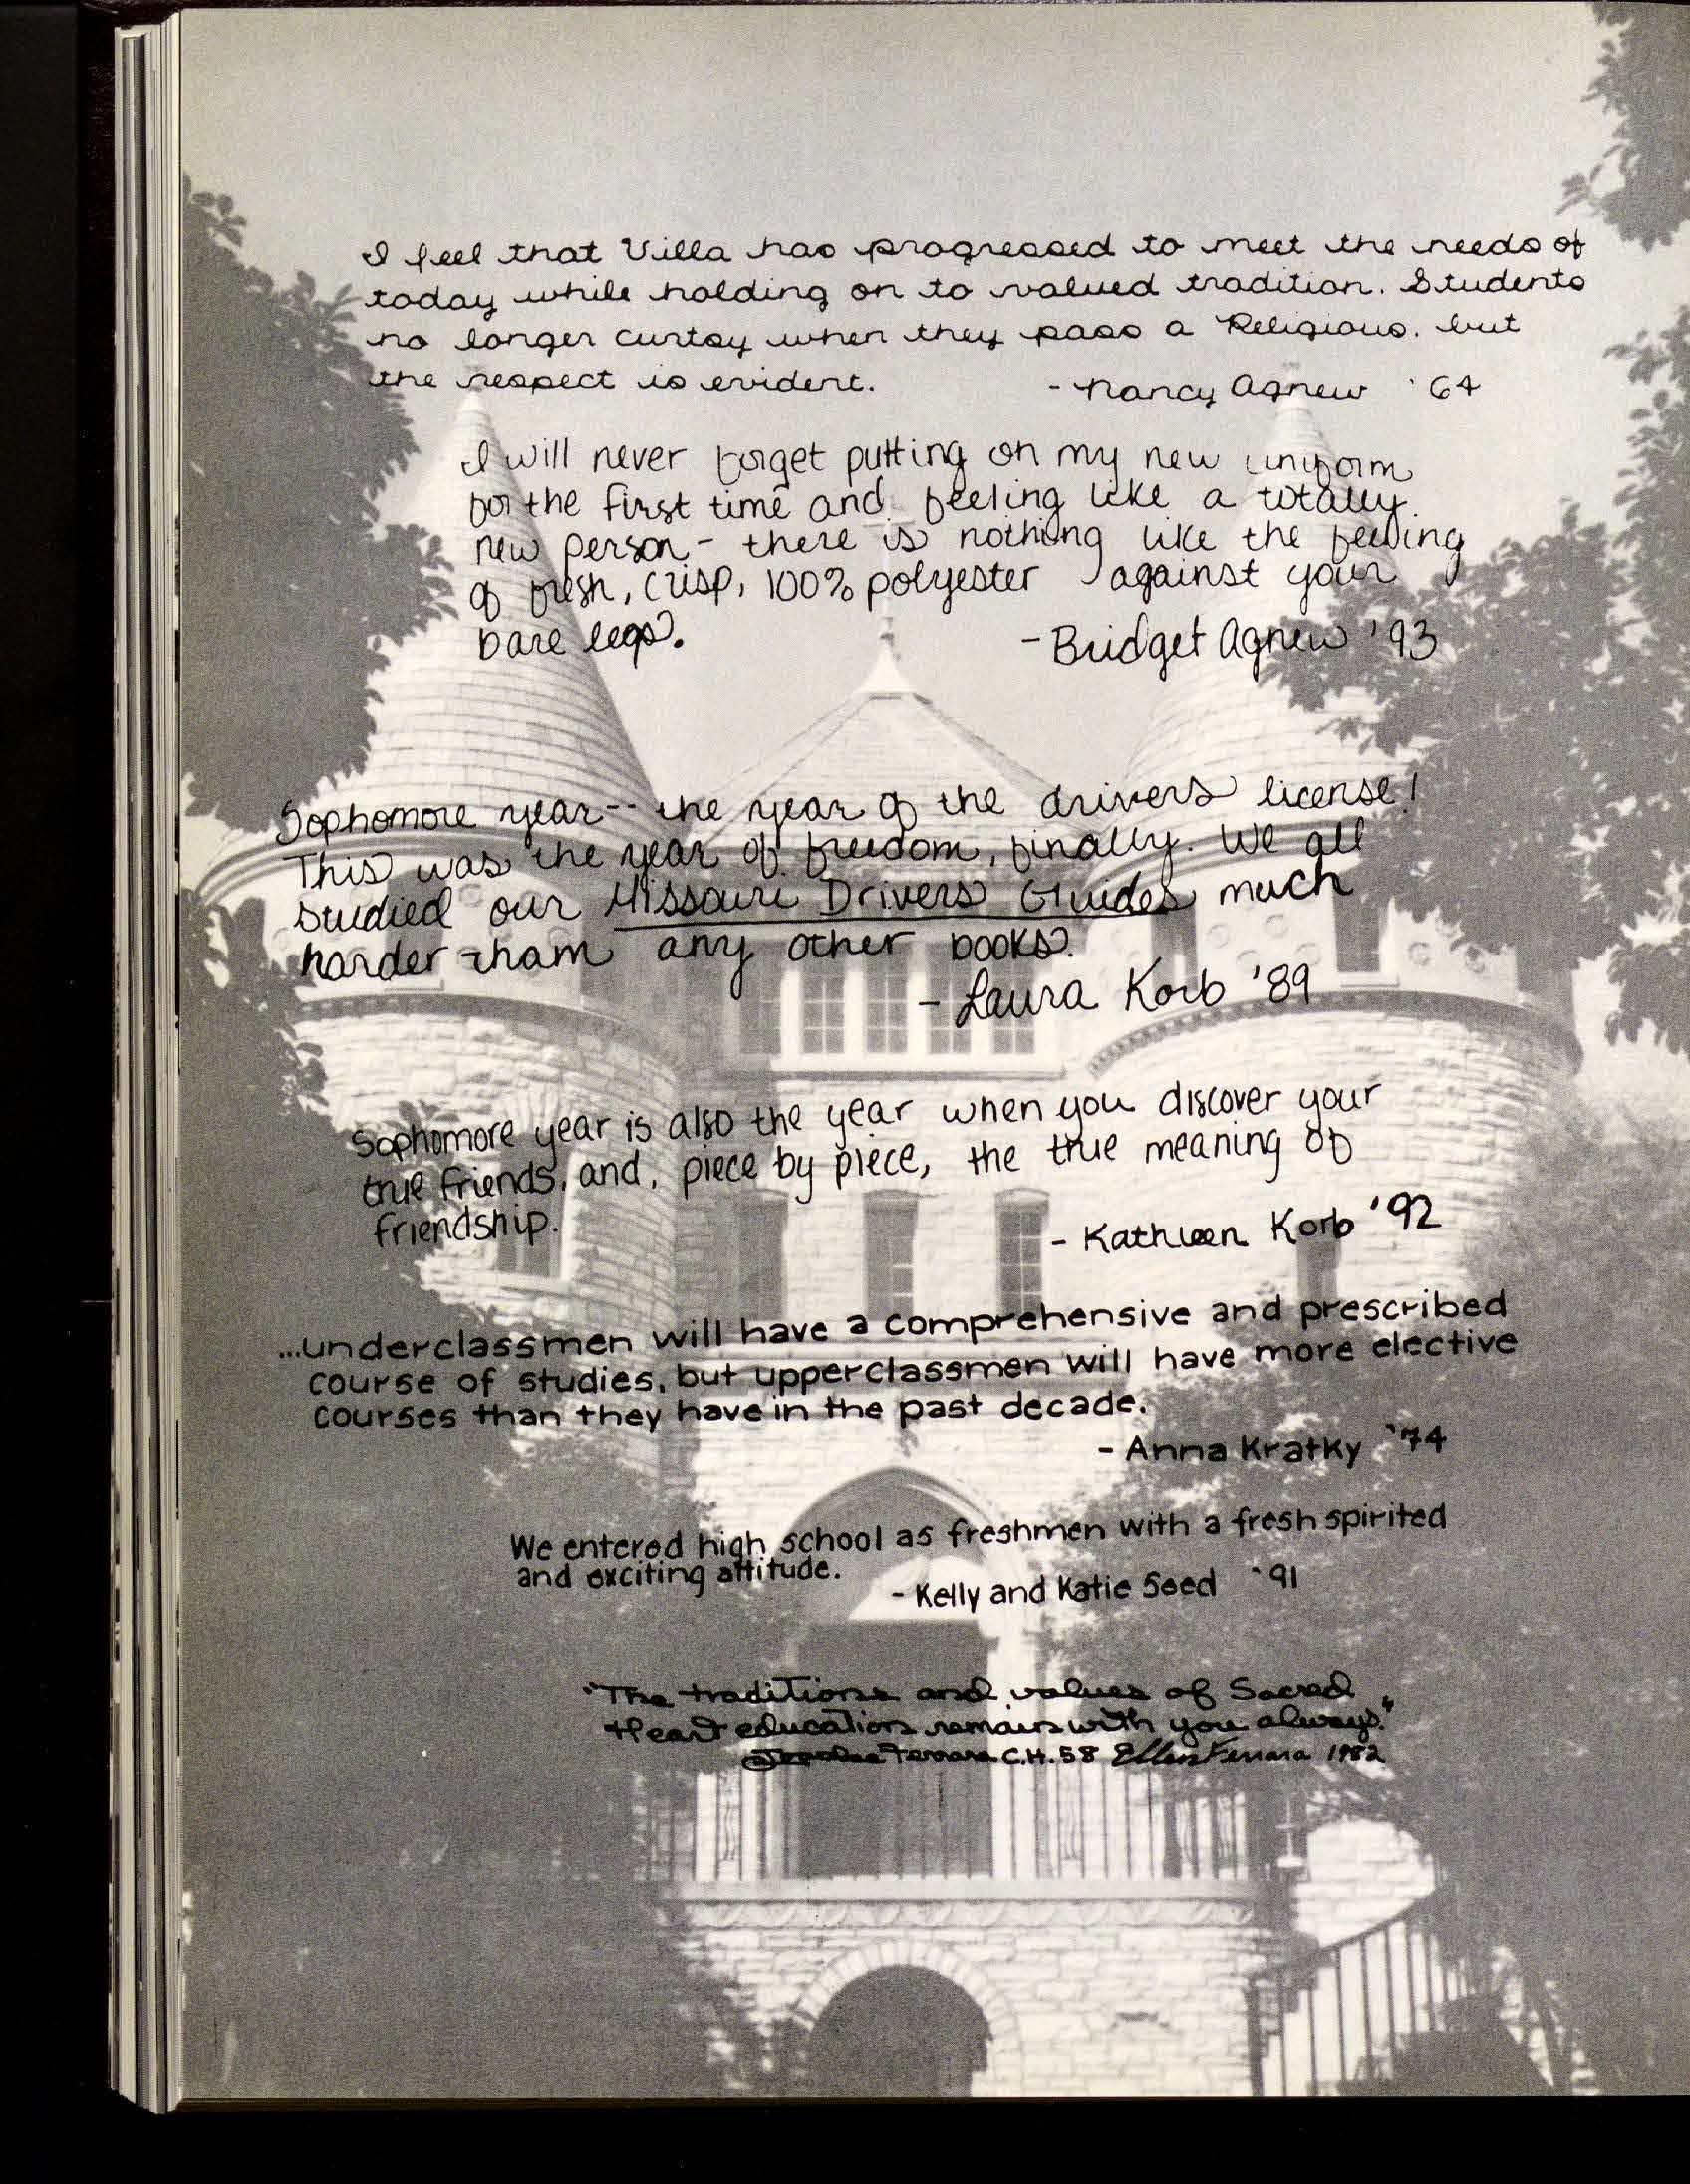 I feel that Villa has progressed to meet the needs of
today while holding on to valued tradition. Students
no longer curtsy when they pass a Religious, but
the respect is evident. - Nancy Agnew '64
I will never forget putting on my new uniform
for the first time and feeling like a totally
new person - there is nothing like the feeling
of fresh, crisp, 100% polyester against your
bare legs. - Bridget Agnew '93
Sophomore year -- the year of the drivers license!
This was the year of freedom, finally. We all
studied our Missouri Drivers Guides much
harder than any other books.
- Laura Korb '89
Sophomore year is also the year when you discover your
true friends, and, piece by piece, the true meaning of
friendship.
- Kathleen Korb '92
...underclassmen will have a comprehensive and prescribed
course of studies, but upperclassmen will have more elective
courses than they have in the past decade.
- Anna Kratky '74
We entered high school as freshmen with a fresh spirited
and exciting attitude.
- Kelly and Katie Seed '91
"The traditions and values of Sacred
Heart education remains with you always."
Ferrara C.H. 58 Ellen Ferrara 1982